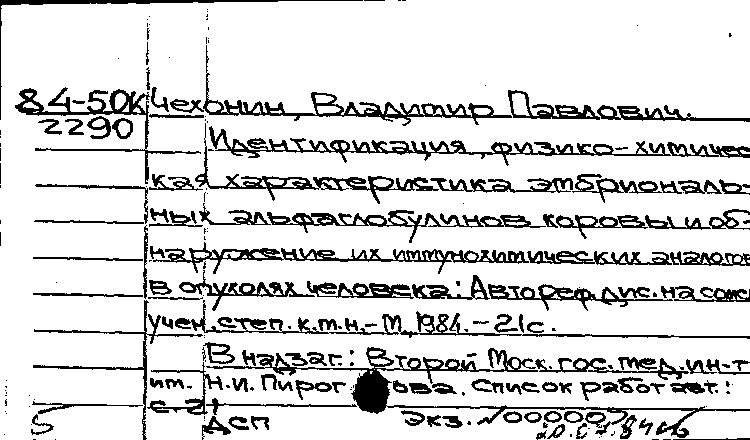 84-50К Чехонин, Владимир Павлович.
2290
Идентификация, физико-химичес
кая характеристика эмбриональ-
ных альфаглобулинов коровы и об-
наружение их иммунохимических аналогов
в опухолях человека: Автореф. дис. на соиск
учен. степ. к.м.н. - М, 1984. - 21с.
В надзаг.: Второй Моск. гос. мед. ин-т
им. Н.И. Пирогова. Список работ авт.:
с. 21
5 ДСП экз. №